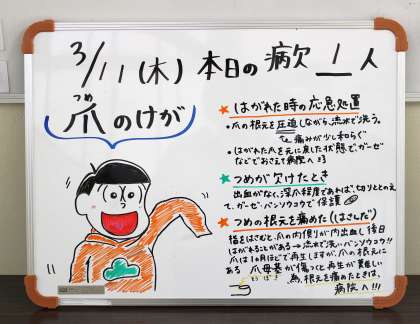 3/11(木) 本日の病欠 1人
つめ
爪のけが
★はがれた時の応急処置
・爪の根元を圧迫しながら、流水で洗う。
→痛みが少し和らぐ
・はがれた爪を元に戻した状態で、ガーゼ
などでおさえて病院へ
★つめが欠けたとき
出血がなく、深爪程度であれば、切りととのえ
て、ガーゼ・バンソウコウで保護
★つめの根元を痛めた(はさんだ)
指をはさむと、爪の内側りが内出血し後日
はがれることがある→流水で洗い・バンソウコウ!!
爪は10ヶ月ほどで再生しますが、爪の根元に
ある爪母基が傷つくと再生が難しい
そうぼき
為、根元を痛めたときは、
病院へ!!!